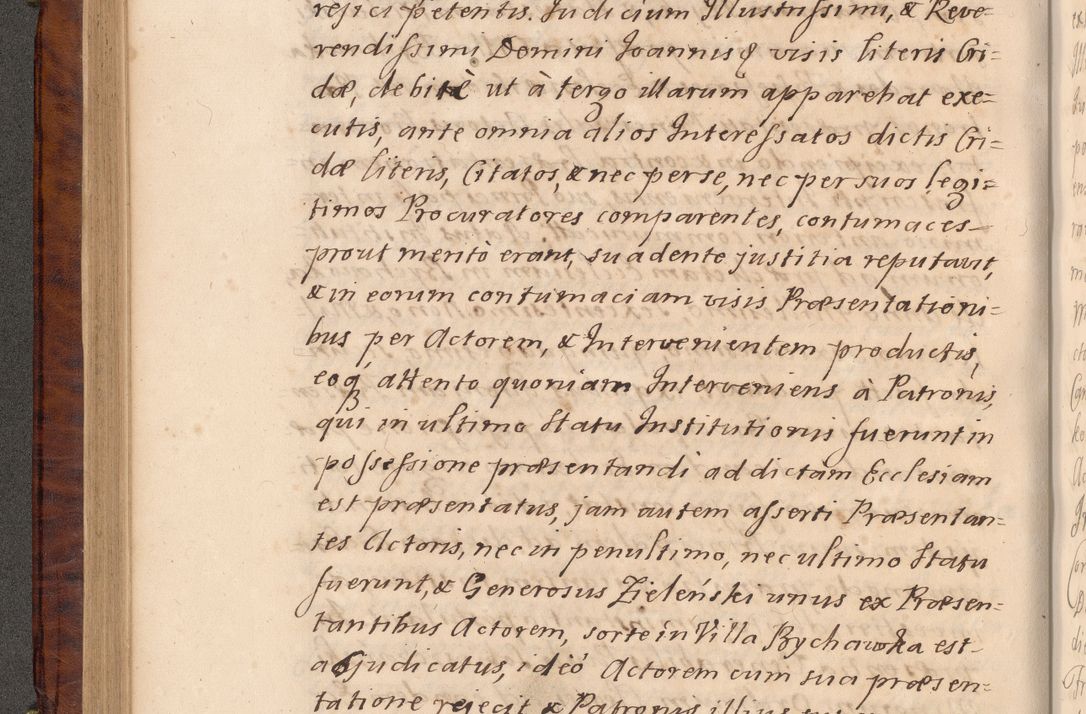 rejici petentis. Judicium Illustrissimi, & Reve=
rendissimi Domini Joannisq visis literis Cri=
dæ, debitè ut à tergo illarum apparebat exe=
cutis, ante omnia alios Interessatos dictis Cri=
dæ literis, Citatos, & nec per se, nec per suos legi=
timos Procuratores comparentes, contumaces
prout meritò erant, suadente justitia reputavit,
& in eorum contumaciam visis Præsentationi=
bus per Actorem, & Intervenientem productis,
eoq attento quoniam Interveniens à Patronis,
qui in ultimo statu Institutionis fuerunt in
possessione præsentandi ad dictam Ecclesiam
est præsentatus, jam autem asserti Præsentan=
tes Actoris, nec in penultimo, nec ultimo statu
fuerunt, & Generosus Zieleński unus ex Præsen=
tantibus Actorem, sorte in Villa Bychawka est
adjudicatus, ideó Actorem cum sua præsen=
tatione rejecit & Patronis illius